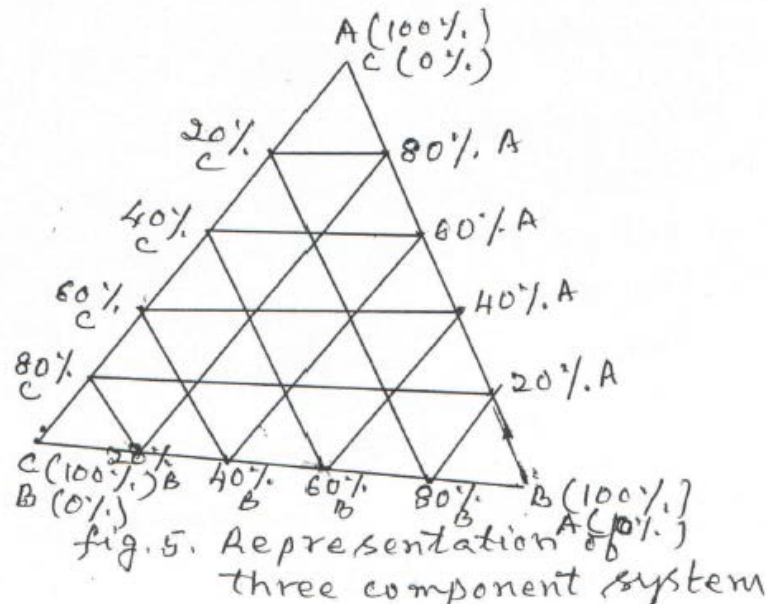 A (100%)
C (0%)
20%
C
80% A
40%
C
60% A
60%
C
40% A
80%
C
20% A
C (100%)
B (0%)
20%
B
40%
B
60%
B
80%
B
B (100%)
A (0%)
fig. 5. Representation of
three component system